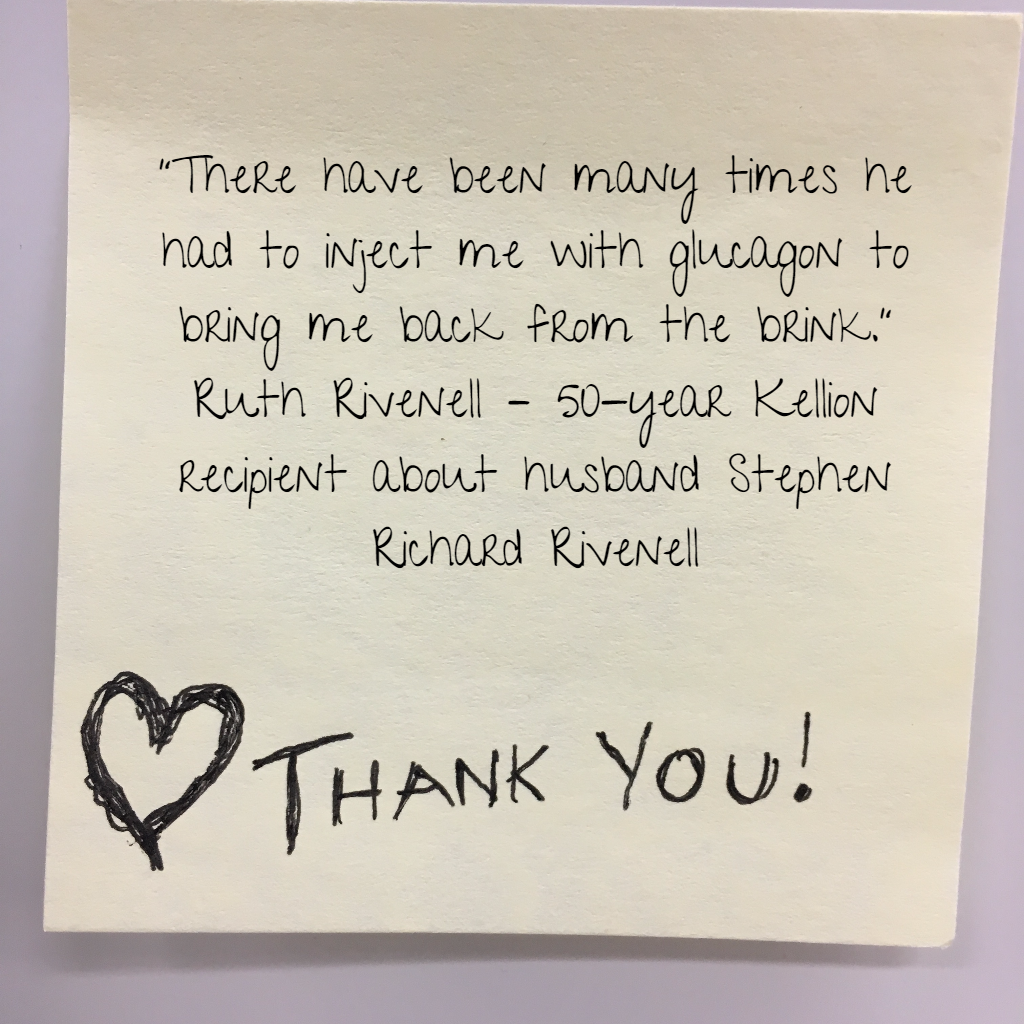 "There have been many times he
had to inject me with glucagon to
bring me back from the brink."
Ruth Rivenell - 50-year Kellion
recipient about husband Stephen
Richard Rivenell
THANK YOU!